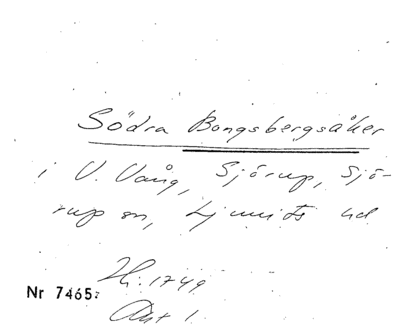 Södra Bongsbergsåker
i V. Vång, Sjörup, Sjö-
rup sn, Ljunits hd
Hi. 1749
Akt 1.
Nr 7465